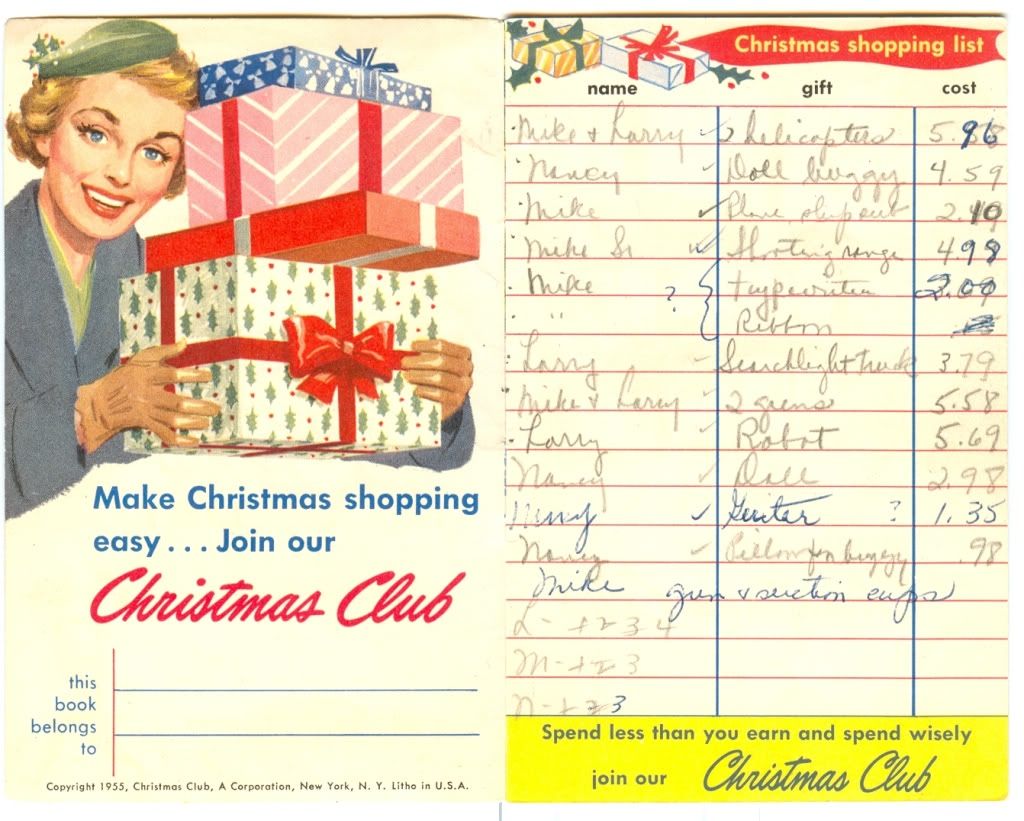 Make Christmas shopping
easy... Join our
Christmas Club
this
book
belongs
to
Copyright 1955, Christmas Club, A Corporation, New York, N. Y. Litho in U.S.A.
Christmas shopping list
name gift cost
Mike & Larry ✓ 2 helicopters 5.96
Nancy ✓ Doll buggy 4.59
Mike ✓ Plane 2.10
Mike Sr ✓ Shooting range 4.98
Mike ? { typewriter
" " Ribbon
Larry Searchlight truck 3.79
Mike & Larry ✓ 2 guns 5.58
Larry Robot 5.69
Nancy ✓ Doll 2.98
✓ Guitar ? 1.35
Nancy ✓ Pillow for buggy .98
Mike gun & suction cups
L - 1 2 3 4
M - 1 2 3
N - 1 2 3
Spend less than you earn and spend wisely
join our Christmas Club